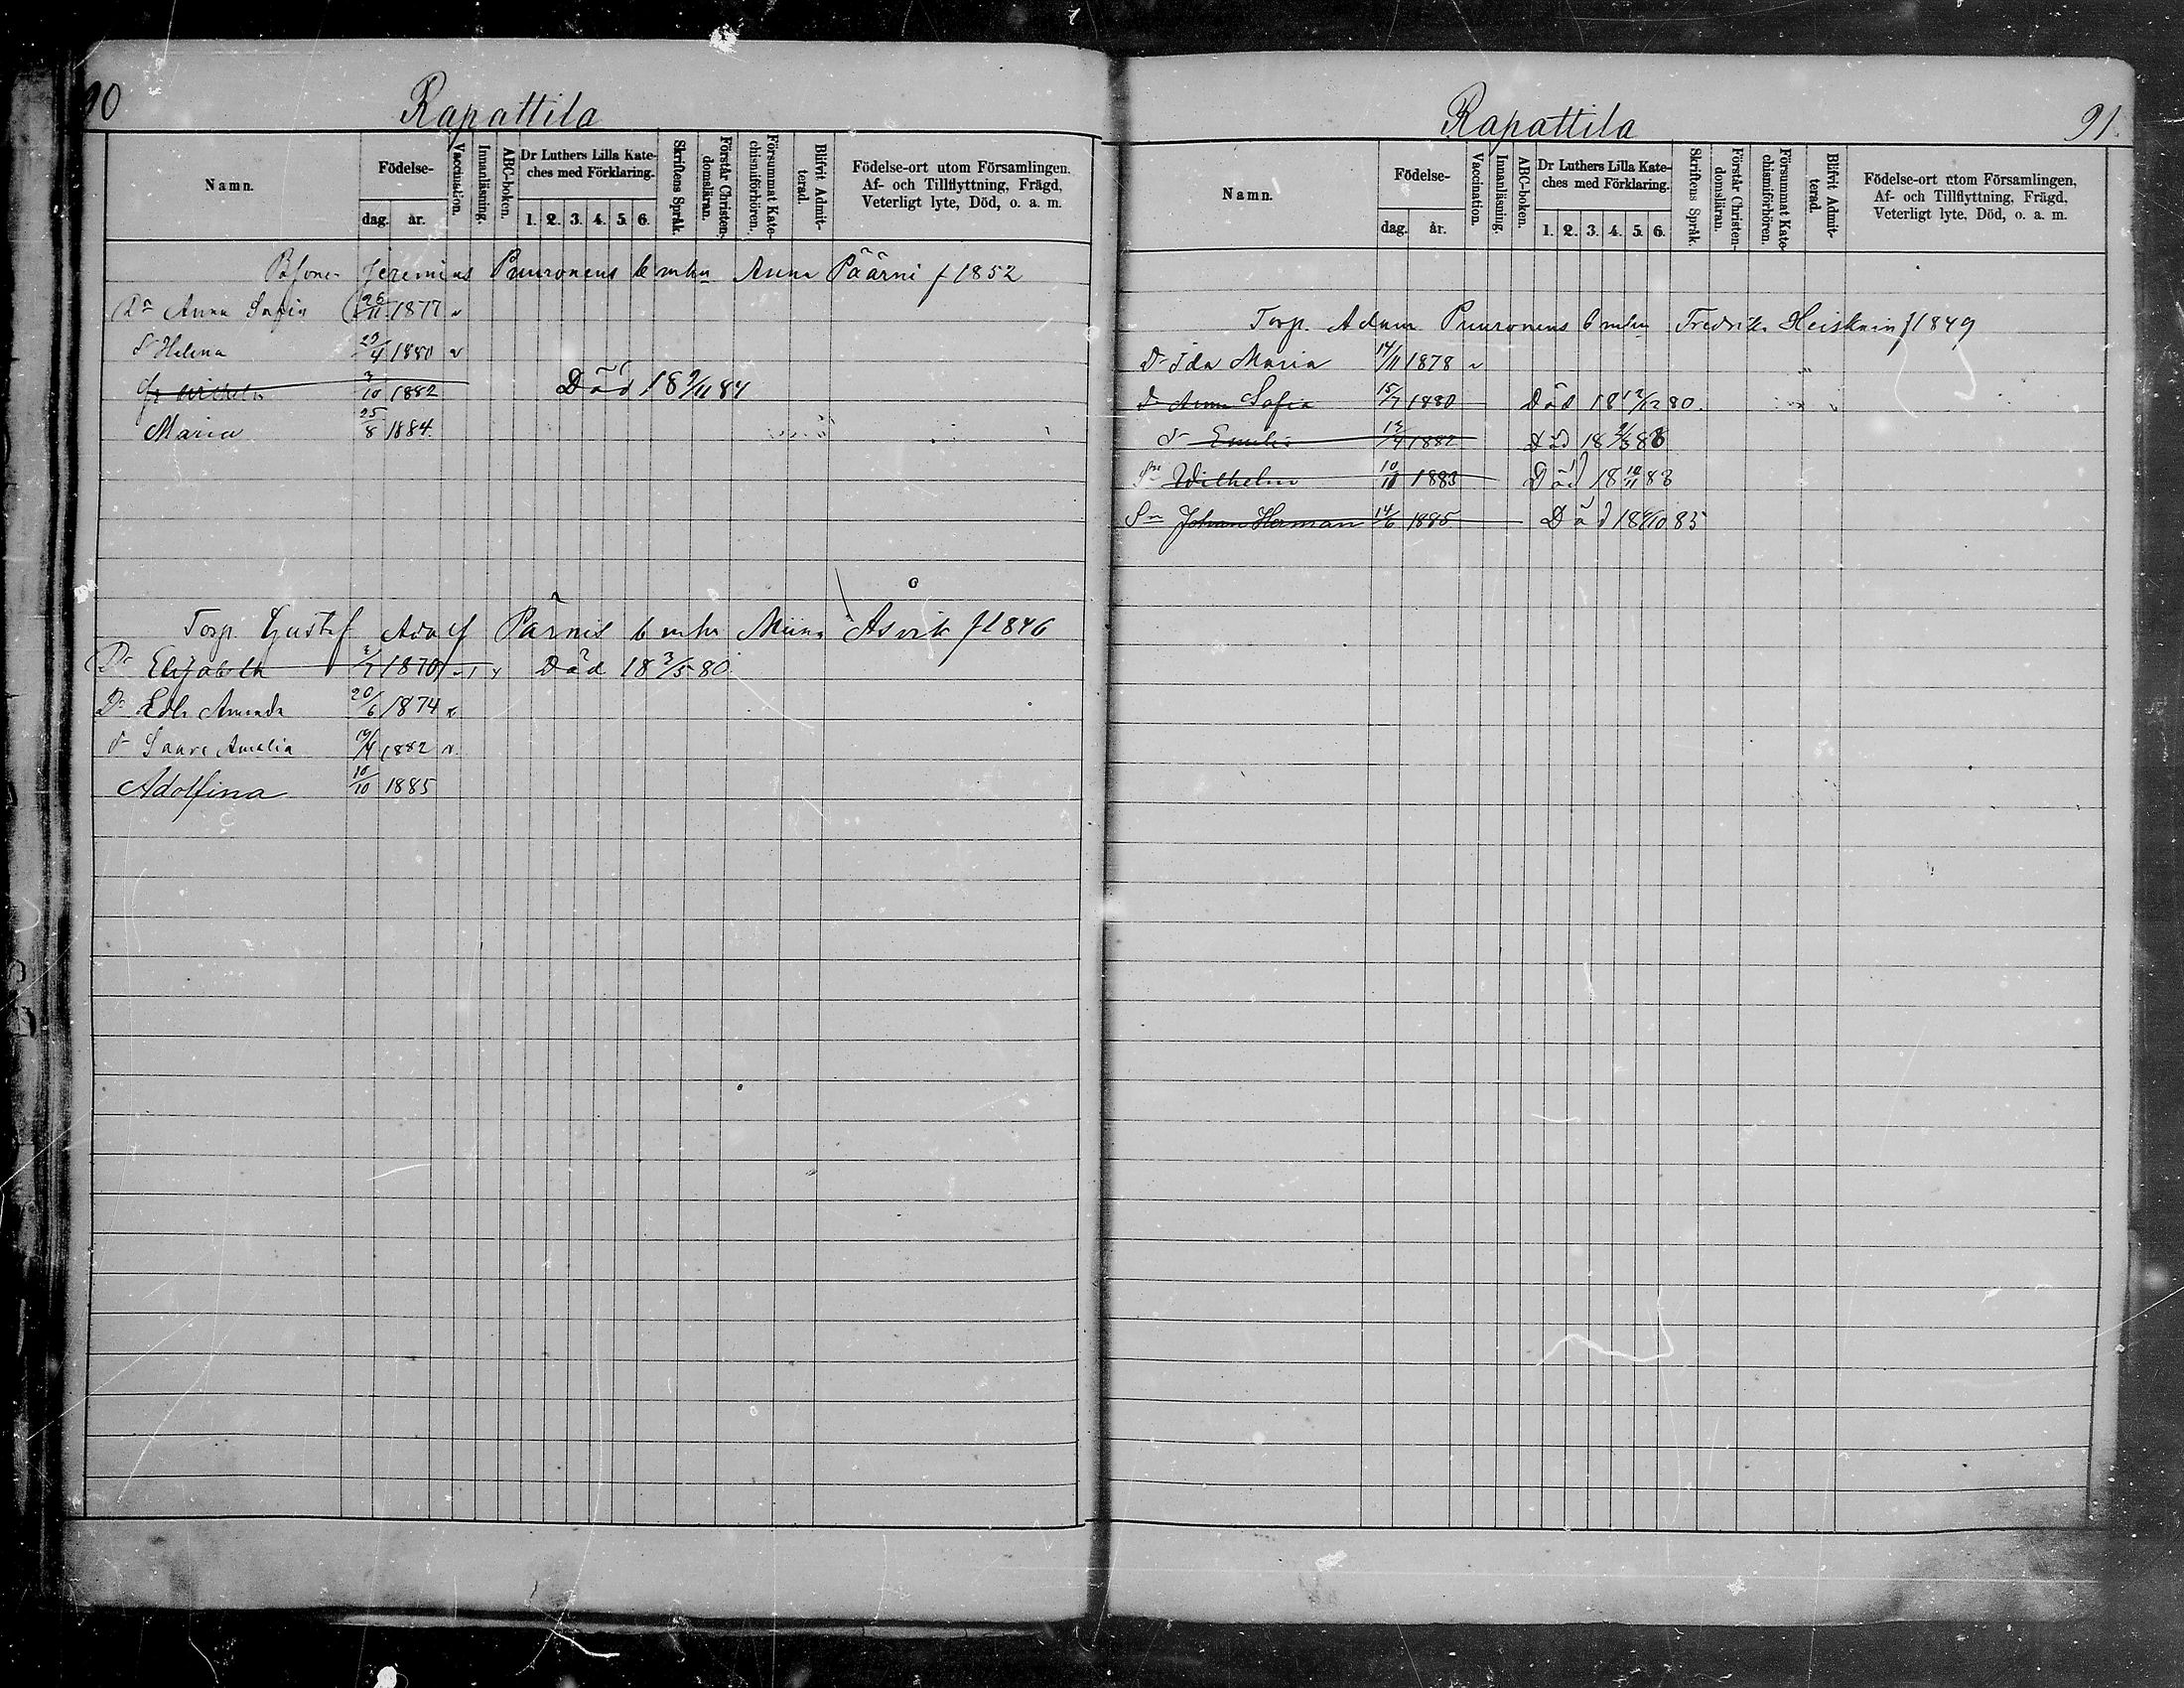 90
Rapattila
Namn.
Födelse-
dag. år.
Vaccination.
Innanläsning.
ABC-boken.
Dr Luthers Lilla Kate-
ches med Förklaring.
1. 2. 3. 4. 5. 6.
Skriftens Språk.
Förstår Christen-
domsläran.
Försummat Kate-
chismiförhören.
Blifvit Admit-
terad.
Födelse-ort utom Församlingen,
Af- och Tillflyttning, Frägd,
Veterligt lyte, Död, o. a. m.
Jeremias Puuronens Anna Päärni f 1852
Dr Anna Sofia 26/11 1877 v
dr Helena 29/4 1880 v
Wilhelm 3/10 1882 Död 18 9/11 84
Maria 25/8 1884.
Torp. Gustaf Adolf Pärnis Miina Åsvik f 1846
Dr Elisabeth 1870 Död 18 3/5 80
Dr Edla Amanda 20/6 1874
dr Saara Amalia 19/4 1882 v
Adolfina 10/10 1885
Rapattila 91.
Namn.
Födelse-
dag. år.
Vaccination.
Innanläsning.
ABC-boken.
Dr Luthers Lilla Kate-
ches med Förklaring.
1. 2. 3. 4. 5. 6.
Skriftens Språk.
Förstår Christen-
domsläran.
Försummat Kate-
chismiförhören.
Blifvit Admit-
terad.
Födelse-ort utom Församlingen,
Af- och Tillflyttning, Frägd,
Veterligt lyte, Död, o. a. m.
Torp. Adam Puuronens Fredrika Heiskain f 1849
Dr Ida Maria 14/11 1878 v
dr Anna Sofia 15/7 1880 Död 18 12/12 80.
dr Emilia 1882 Död
Sn Wilhelm 10/11 1883 Död 18 10/11 83
Sn Johan Herman 14/6 1885 Död 85